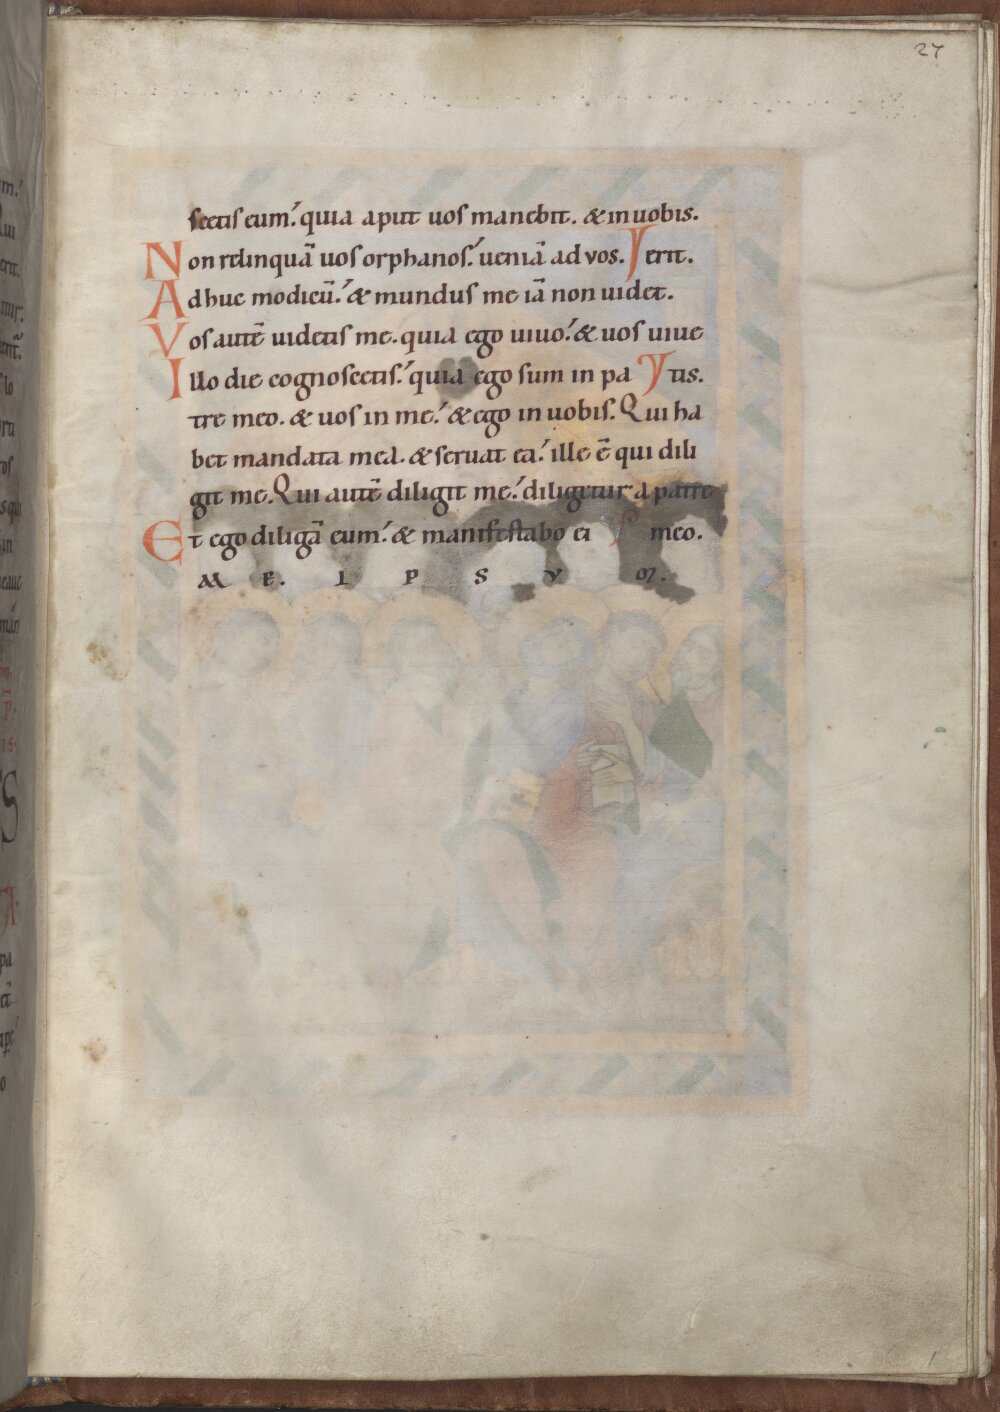 27
scetis eum. quia aput uos manebit. & in uobis.
Non relinquā uos orphanos. ueniā ad vos.
erit.
Adhuc modicū. & mundus me iā non uidet.
Vos autē uidetis me. quia ego uiuo. & uos uiue
tis.
Illo die cognoscetis. quia ego sum in pa
tre meo. & uos in me. & ego in uobis. Qui ha
bet mandata mea. & seruat ea. ille ē qui dili
git me. Qui autē diligit me. diligetur a patre
meo.
Et ego diligā eum. & manifestabo ei
ME. IPSUM.